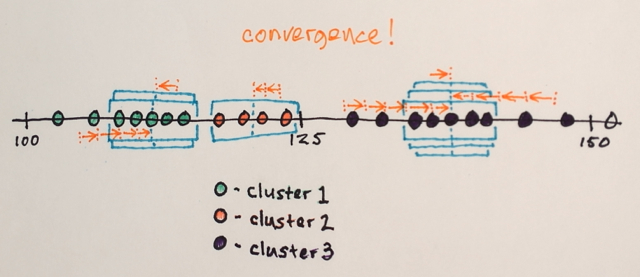 convergence!
100
125
150
- cluster 1
- cluster 2
- cluster 3